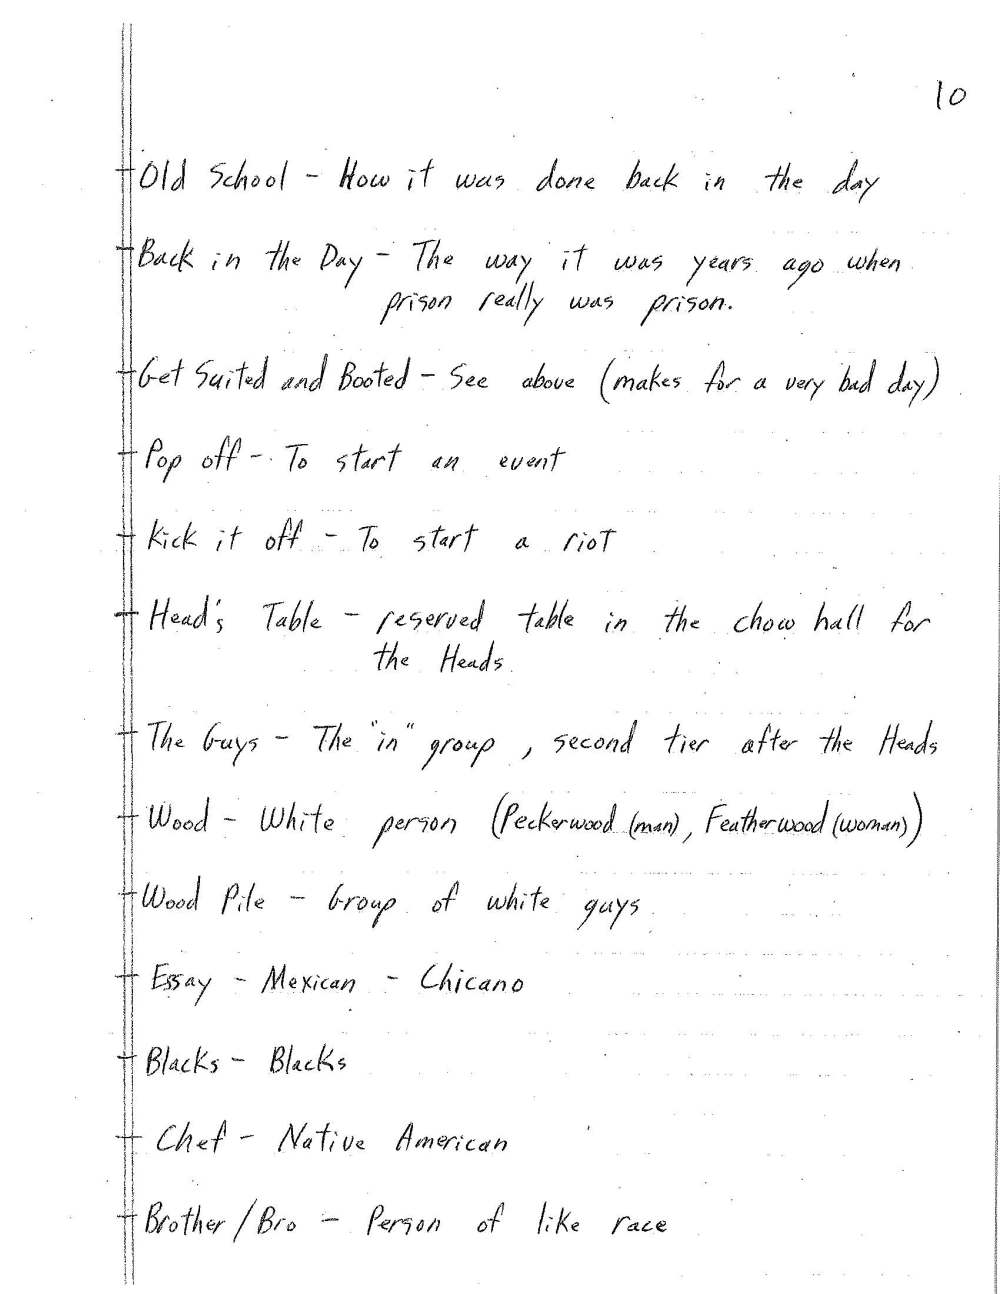 10
Old School - How it was done back in the day
Back in the Day - The way it was years ago when
prison really was prison.
Get Suited and Booted - See above (makes for a very bad day)
Pop off - To start an event
Kick it off - To start a riot
Head's Table - reserved table in the chow hall for
the Heads
The Guys - The "in" group, second tier after the Heads
Wood - White person (Peckerwood (man), Featherwood (woman))
Wood Pile - Group of white guys
Essay - Mexican - Chicano
Blacks - Blacks
Chef - Native American
Brother/Bro - Person of like race